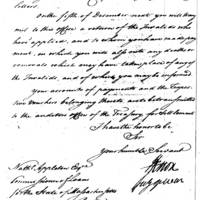 letters.
On the fifth of December next you will transmit
to this office a return of the Invalids who
have applied, and to whom you have made payment
in which you will also
removals which may have taken place of any of
the Invalids, and of whom you may be informed.
Your accounts of payments and the respective
vouchers belonging thereto are to be transmitted
to the auditors office of the Treasury for Settlement
I have the honor to be
Sir
Your humble Servant
HKnox
Secy of War
Nathl Appleton Esqr
Commissioner of Loans
for the State of Massachusetts